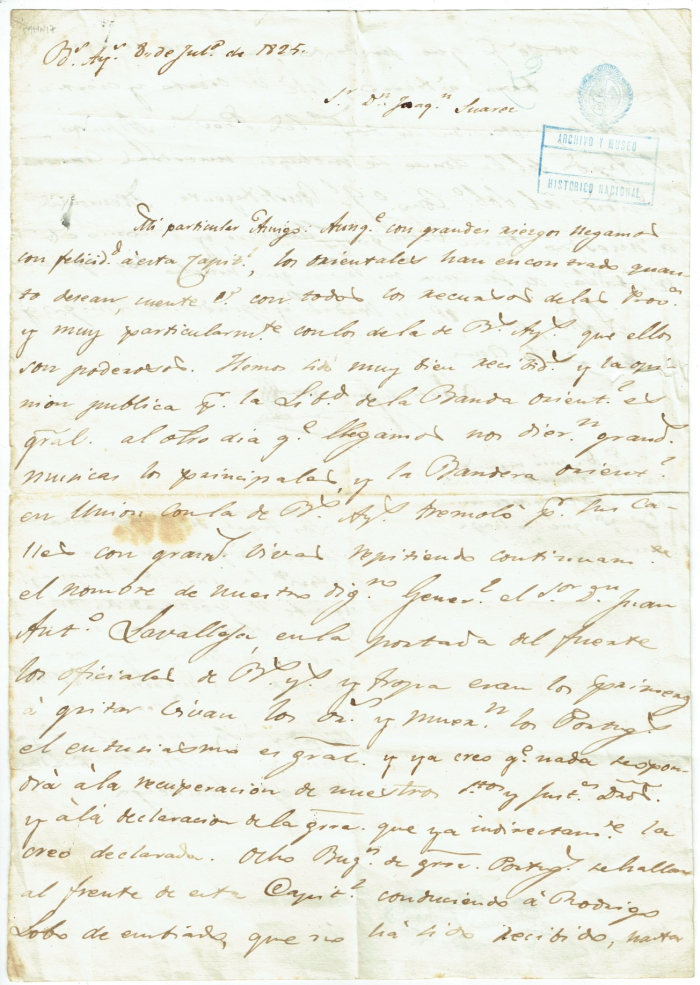 B.s Ay.s 8 de Jul.o de 1825.
S.r D.n Joaq.n Suarez
ARCHIVO Y MUSEO
HISTORICO NACIONAL
Mi particular Amigo: Aunq.e con grandes riezgos llegamos
con felicid.d à esta Capit.l, los orientales han encontrado quan-
to desean, cuente V. con todos los recursos de las Prov.as
y muy particularm.te con los de la de B.s Ay.s que ellos
son poderosos. Hemos sido muy bien recibid.s y la opi-
nion publica p.r la Lib.d de la Banda orient.l es
gral. al otro dia q.e llegamos nos dier.n grand.s
musicas los principales, y la Bandera orient.l
en Union con la de B.s Ay.s tremoló p.r las ca-
lles con grand.s vivas repitiendo continuam.te
el nombre de nuestro dig.no Gener.l el S.or D.n Juan
Ant.o Lavalleja, en la portada del fuerte
los oficiales de B.s y.s y tropa eran los primeros
à gritar vivan los Or.s y muer.n los Portug.s
el entusiasmo es gral. y ya creo q.e nada suspen
drá à la recuperacion de nuestros y Just.os Dros.
y à la declaracion de la grra. que ya indirectam.te la
creo declarada. Ocho Buq.s de grra. Portug.s se hallan
al frente de esta Capit.l conduciendo à Rodrigo
Lobo de embiado, que no há sido recibido, hasta